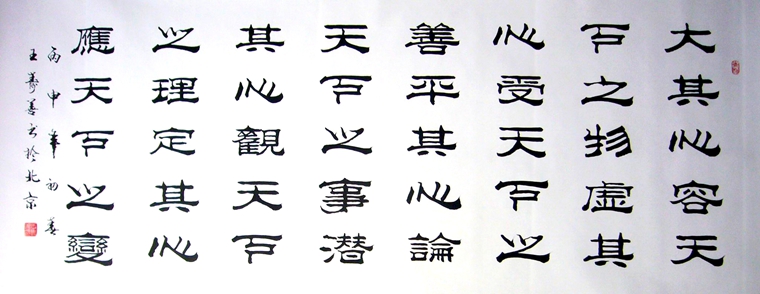 大其心容天
下之物虛其
心受天下之
善平其心論
天下之事潛
其心觀天下
之理定其心
應天下之變
丙申年初
王善书於北京